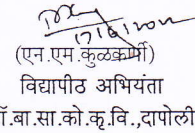 17/6/2021
(एन.एम.कुळकर्णी)
विद्यापीठ अभियंता
ॉ.बा.सा.को.कृ.वि.,दापोली